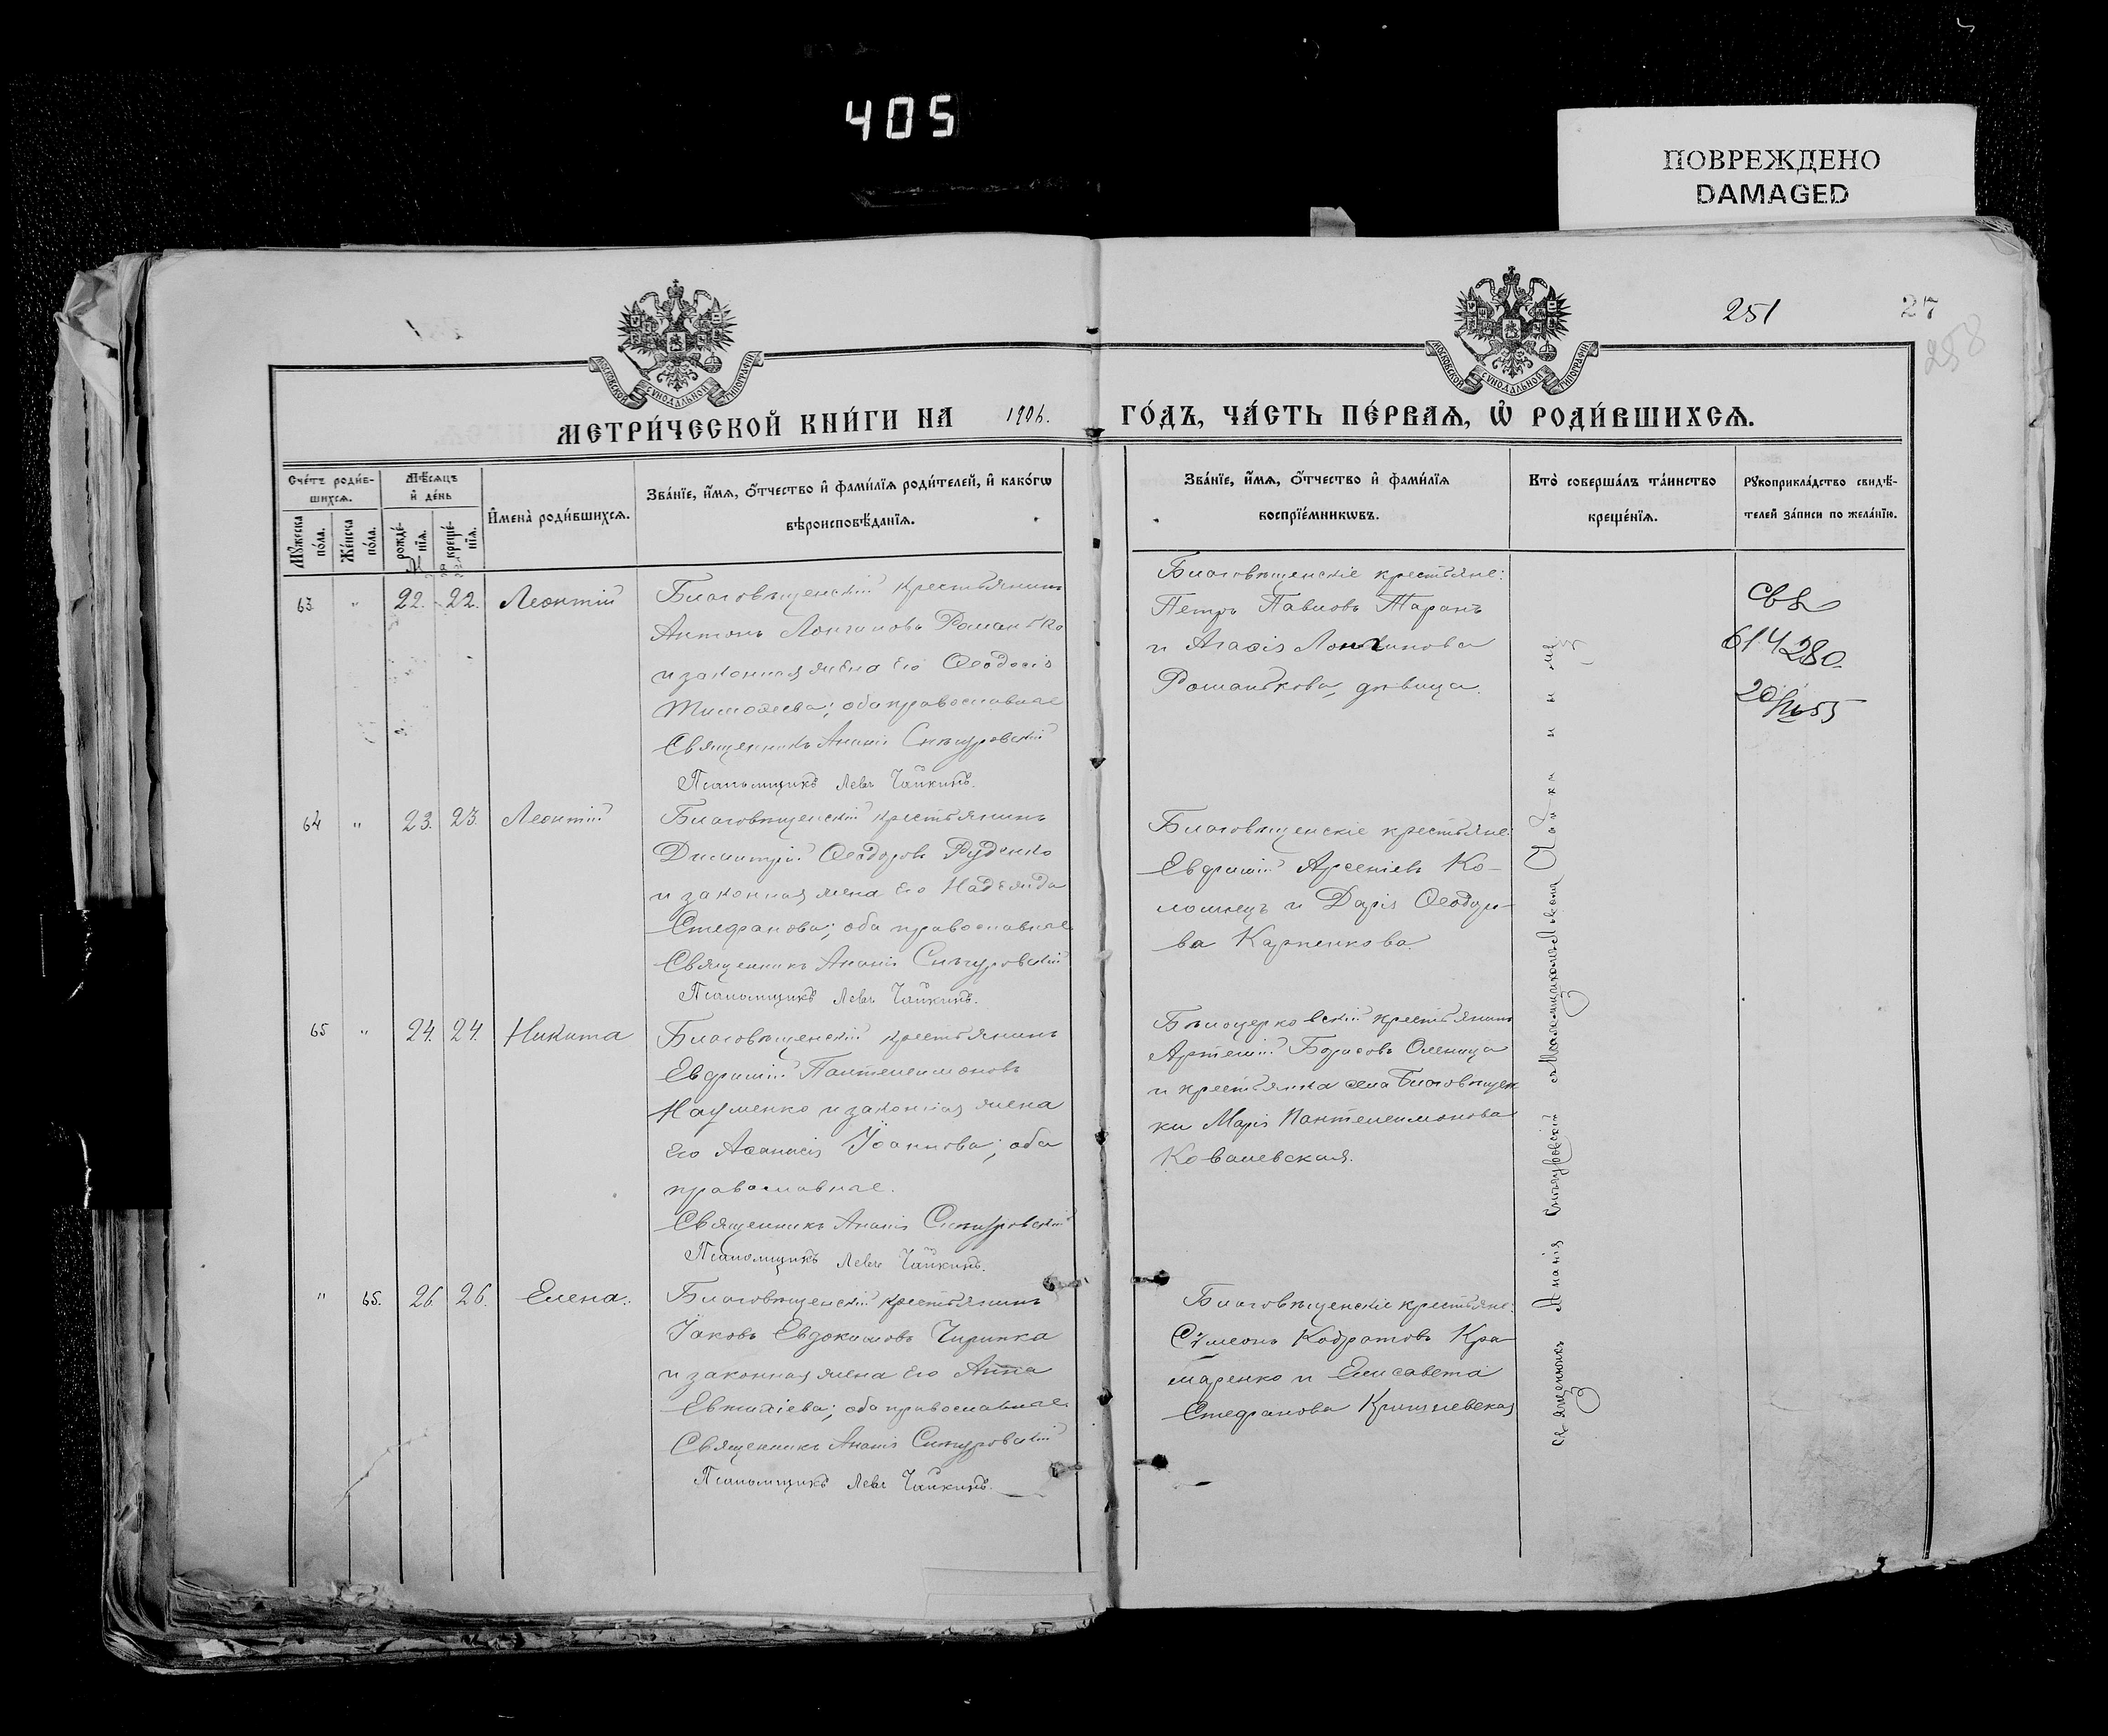 405
ПОВРЕЖДЕНО
DAMAGED
251
27
258
МОСКОВСКОЙ СѴНОДАЛЬНОЙ ТИПОГРАФІИ
МОСКОВСКОЙ СѴНОДАЛЬНОЙ ТИПОГРАФІИ
МЕТРИ́ЧЕСКОЙ КНИ́ГИ НА 1906. ГО́ДЪ, ЧА́СТЬ ПЕ́РВАЯ, Ѡ҆ РОДИ́ВШИХСЯ.
Сче́тъ роди́в-
шихся.
Мꙋ́жеска
по́ла.
Же́нска
по́ла.
Мѣ́сяцъ
и҆ де́нь
рожде́-
нїя.
креще́-
нїя.
И҆мена̀ роди́вшихся.
Зва́нїе, и҆́мя, ѻ҆́тчество и҆ фамі́лїя роди́телей, и҆ како́гѡ
вѣроисповѣ́данїя.
Зва́нїе, и҆́мя, ѻ҆́тчество и҆ фамі́лїя
воспрїе́мникѡвъ.
Кто̀ соверша́лъ та́инство
креще́нїя.
Рꙋкоприкла́дство свидѣ́-
телей за́писи по жела́нїю.
63 " 22. 22. Леонтій
Благовѣщенскій крестьянинъ
Антонъ Лонгиновъ Романько
и законная жена его Ѳеодосія
Тимоѳеева; оба православные
Священникъ Ананія Снѣгуровскій
Псаломщикъ Левъ Чайкинъ.
Благовѣщенскіе крестьяне:
Петръ Павловъ Таранъ
и Агаѳія Лонгинова
Романькова, дѣвица.
614280
64 " 23. 23. Леонтій
Благовѣщенскій крестьянинъ
Димитрій Ѳеодоровъ Руденко
и законная жена его Надежда
Стефанова; оба православные
Священникъ Ананія Снѣгуровскій
Псаломщикъ Левъ Чайкинъ.
Благовѣщенскіе крестьяне:
Евфимій Арсеніевъ Ко-
ломіецъ и Дарія Ѳеодоро-
ва Карпенкова
65 " 24. 24. Никита
Благовѣщенскій крестьянинъ
Евфимій Пантелеимоновъ
Науменко и законная жена
его Аѳанасія Іоаннова; оба
православные.
Священникъ Ананія Снѣгуровскій
Псаломщикъ Левъ Чайкинъ.
Бѣлоцерковскій крестьянинъ
Артемій Борисовъ Оленица
и крестьянка села Благовѣщен
ки Марія Пантелеимонова
Ковалевская.
" 65. 26. 26. Елена.
Благовѣщенскій крестьянинъ
Іаковъ Евдокимовъ Чиринка
и законная жена его Анна
Евтихіева; оба православные.
Священникъ Ананія Снѣгуровскій
Псаломщикъ Левъ Чайкинъ.
Благовѣщенскіе крестьяне:
Сѵмеонъ Кодратовъ Кра-
маренко и Елисавета
Стефанова
Священникъ Ананія Снѣгуровскій съ Псаломщикомъ Львомъ Чайкинымъ